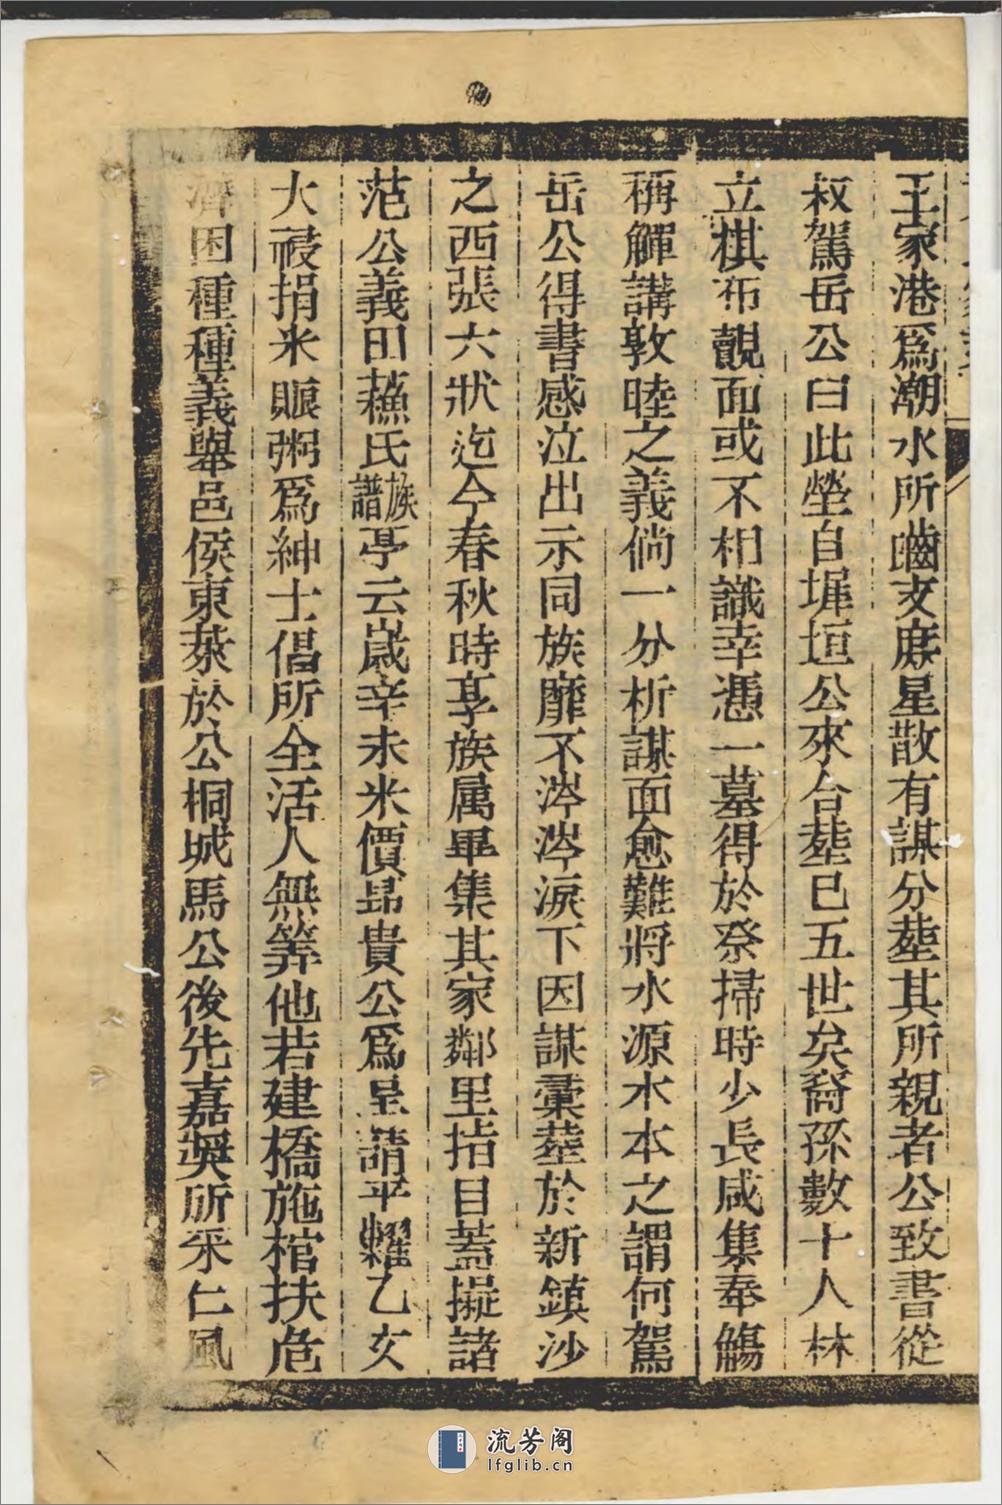 王家港爲潮水所嚙支庶星散有謀分塟其所親者公致書從
叔駕岳公曰此塋自墀垣公來合塟已五世矣裔孫數十人林
立棋布覿面或不相識幸憑一墓得於祭掃時少長咸集奉觴
稱觶講敦睦之義倘一分析謀面愈難將水源木本之謂何駕
岳公得書感泣出示同族靡不涔涔淚下因謀彙塟於新鎮沙
之西張六狀迄今春秋時享族属畢集其家鄰里指目蓋擬諸
范公義田蘓氏族譜亭云嵗辛未米價昻貴公爲呈請平糶乙亥
大祲捐米賑粥爲紳士倡所全活人無筭他若建橋施棺扶危
濟困種種義舉邑侯東萊於公桐城馬公後先嘉奬所采仁風
流芳阁
lfglib.cn